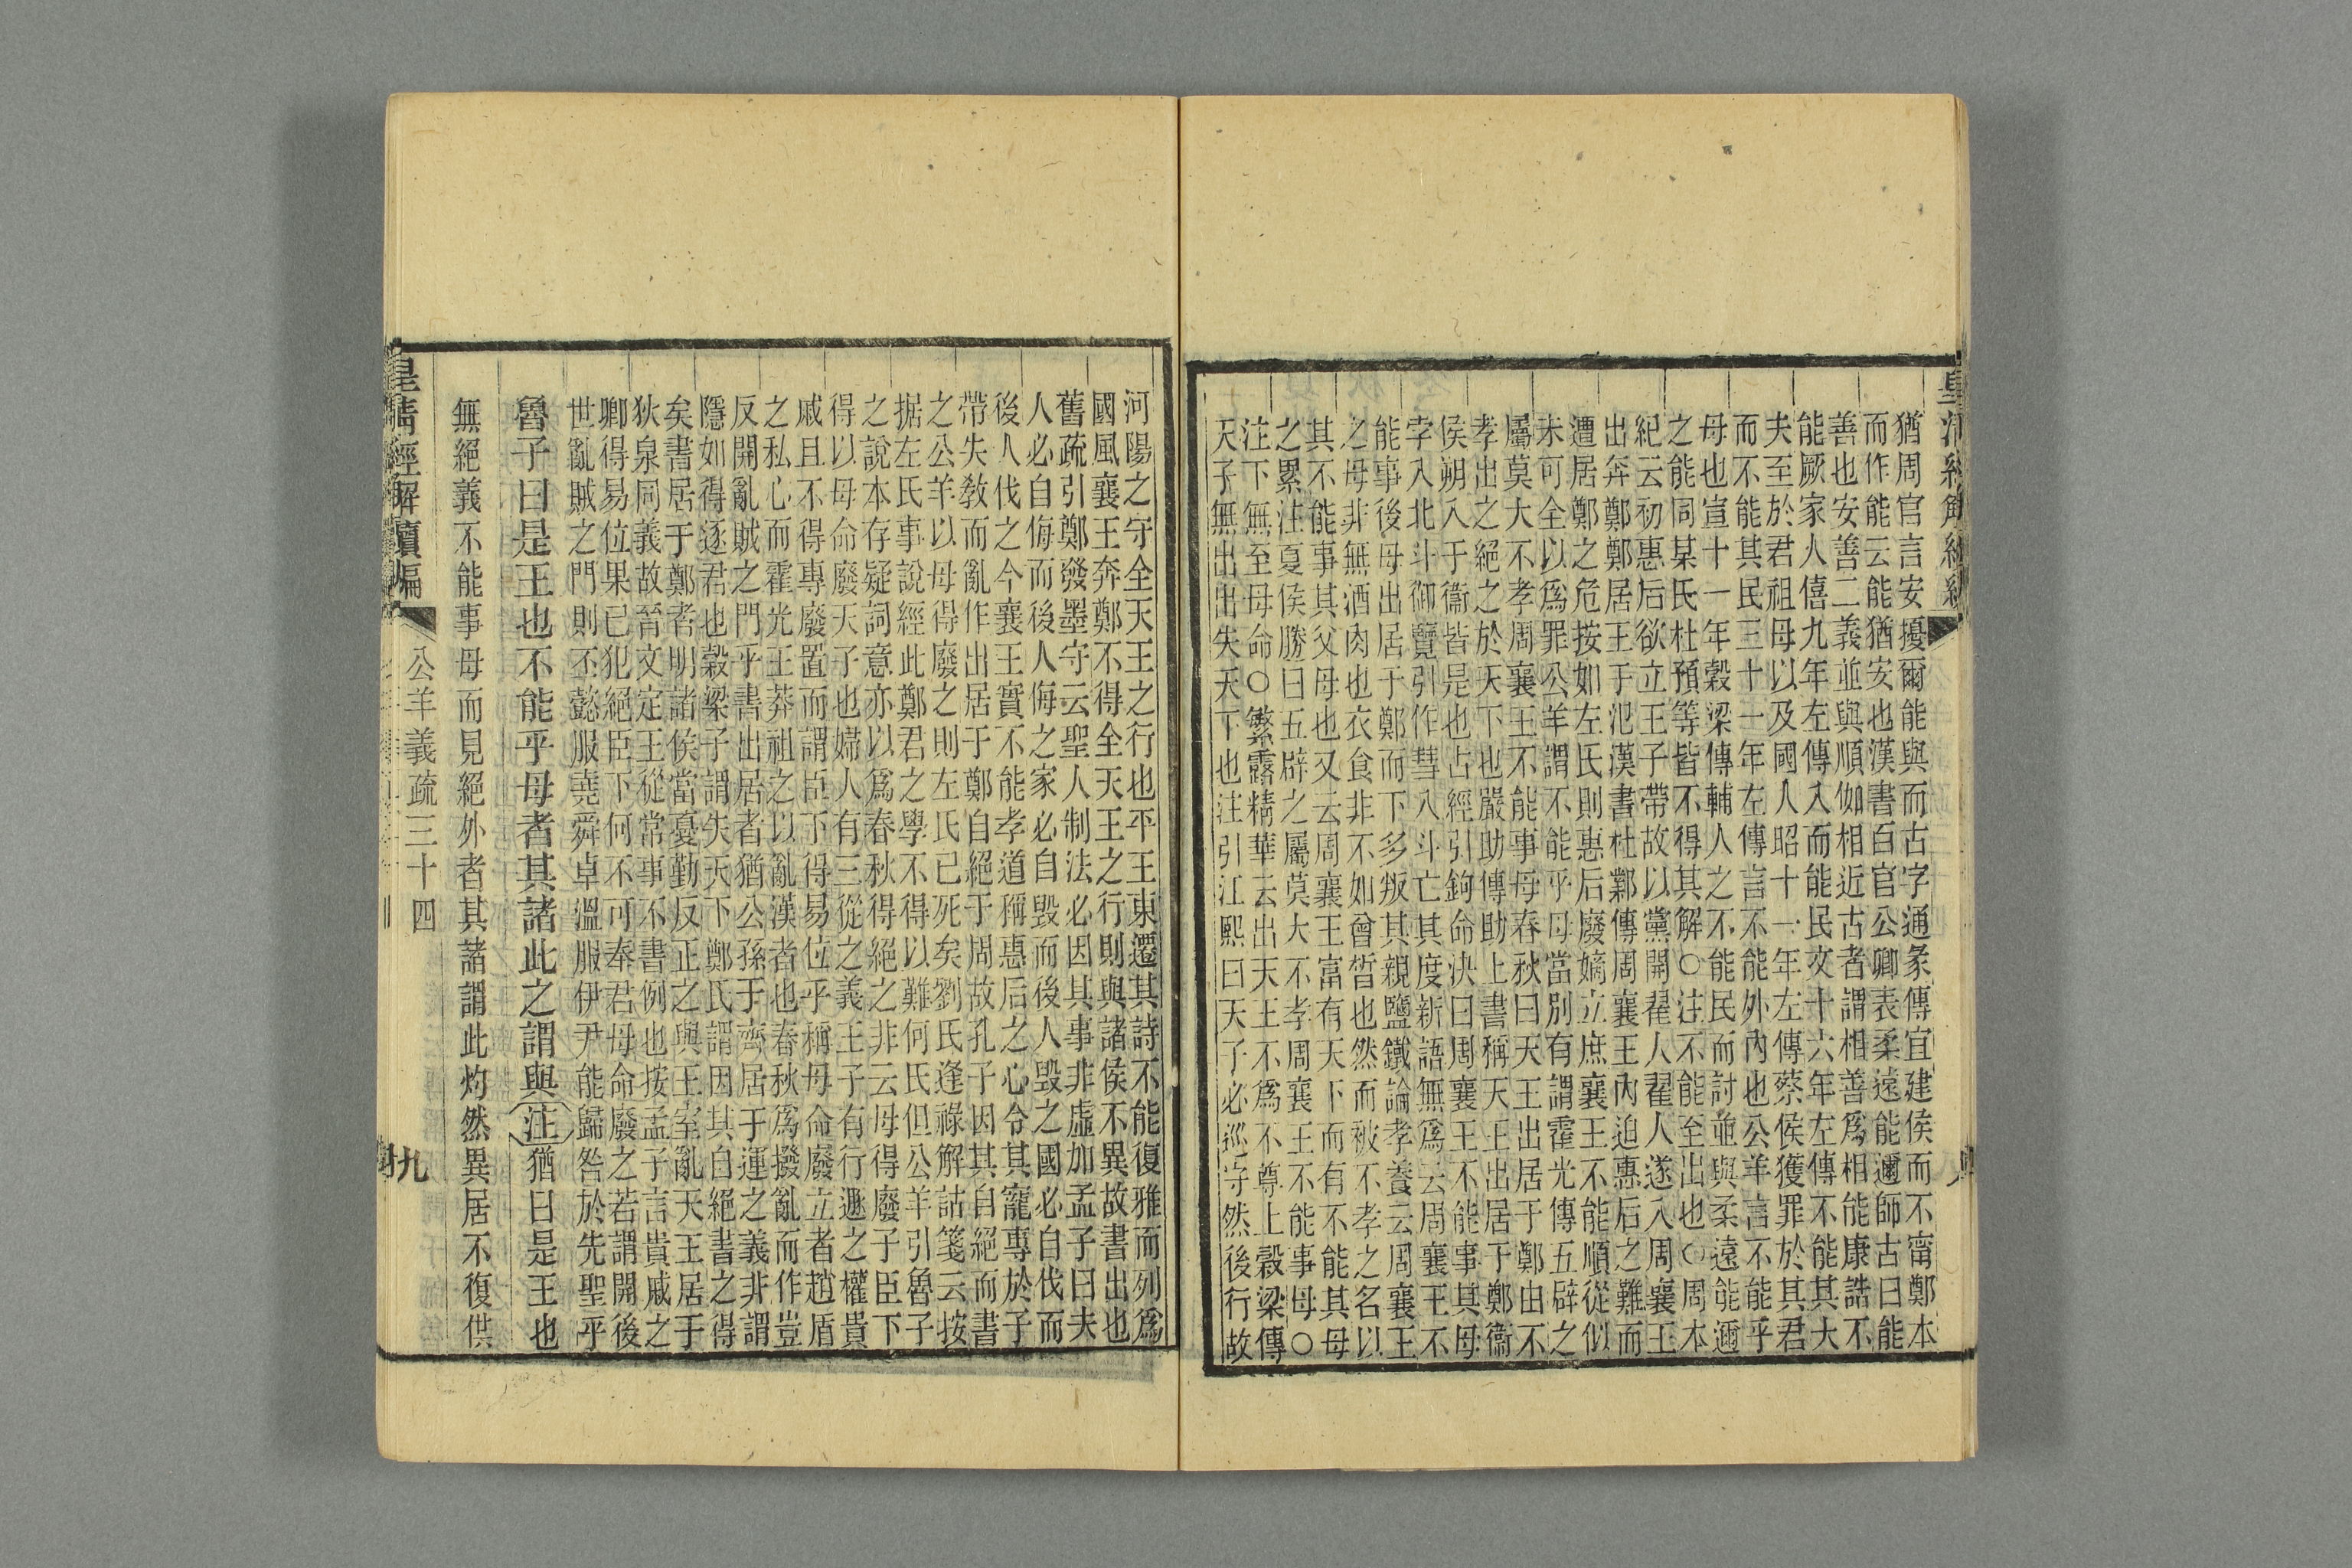 猶周官言安擾爾能與而古字通彖傳宜建侯而不甯鄭本
而作能云能猶安也漢書百官公卿表柔遠能邇師古曰能
善也安善二義並與順伽相近古者謂相善爲相能康誥不
能厥家人僖九年左傳入而能民文十六年左傳不能其大
夫至於君祖母以及國人昭十一年左傳蔡侯獲罪於其君
而不能其民三十一年左傳言不能外內也公羊言不能乎
母也宣十一年穀梁傳輔人之不能民而討並與柔遠能邇
之能同某氏杜預等皆不得其解○注不能至出也○周本
紀云初惠后欲立王子帶故以黨開翟人翟人遂入周襄王
出奔鄭鄭居王于氾漢書杜鄴傳周襄王內迫惠后之難而
遭居鄭之危按如左氏則惠后廢嫡立庶襄王不能順從似
未可全以爲罪公羊謂不能乎母當別有謂霍光傳五辟之
屬莫大不孝周襄王不能事母春秋曰天王出居于鄭由不
孝出之絕之於天下也嚴助傳助上書稱天王出居于鄭衞
侯朔入于衞皆是也占經引鉤命決曰周襄王不能事其母
孛入北斗御覽引作彗入斗亡其度新語無爲云周襄王不
能事後母出居于鄭而下多叛其親鹽鐵論孝養云周襄王
之母非無酒肉也衣食非不如曾晳也然而被不孝之名以
其不能事其父母也又云周襄王富有天下而有不能其母
之累注夏侯勝曰五辟之屬莫大不孝周襄王不能事母○
注下無至母命○繁露精華云出天王不爲不尊上穀梁傳
天子無出出失天下也注引江熙曰天子必巡守然後行故
河陽之守全天王之行也平王東遷其詩不能復雅而列爲
國風襄王奔鄭不得全天王之行則與諸侯不異故書出也
舊疏引鄭發墨守云聖人制法必因其事非虛加孟子曰夫
人必自侮而後人侮之家必自毀而後人毀之國必自伐而
後人伐之今襄王實不能孝道稱惠后之心令其寵專於子
帶失教而亂作出居于鄭自絕于周故孔子因其自絕而書
之公羊以母得廢之則左氏已死矣劉氏逢祿解詁箋云按
据左氏事說經此鄭君之學不得以難何氏但公羊引魯子
之說本存疑詞意亦以爲春秋得絕之非云母得廢子臣下
得以母命廢天子也婦人有三從之義王子有行遯之權貴
戚且不得專廢置而謂臣下得易位乎稱母命廢立者趙盾
之私心而霍光王莽祖之以亂漢者也春秋爲撥亂而作豈
反開亂賊之門乎書出居者猶公孫于齊居于運之義非謂
隱如得逐君也穀梁子謂失天下鄭氏謂因其自絕書之得
矣書居于鄭者明諸侯當憂勤反正之與王室亂天王居于
狄泉同義故晉文定王從常事不書例也按孟子言貴戚之
卿得易位果已犯絕臣下何不可奉君母命廢之若謂開後
世亂賊之門則丕懿服堯舜卓溫服伊尹能歸咎於先聖乎
魯子曰是王也不能乎母者其諸此之謂與注猶曰是王也
無絕義不能事母而見絕外者其諸謂此灼然異居不復供
皇清經解續編
公羊義疏三十四
九